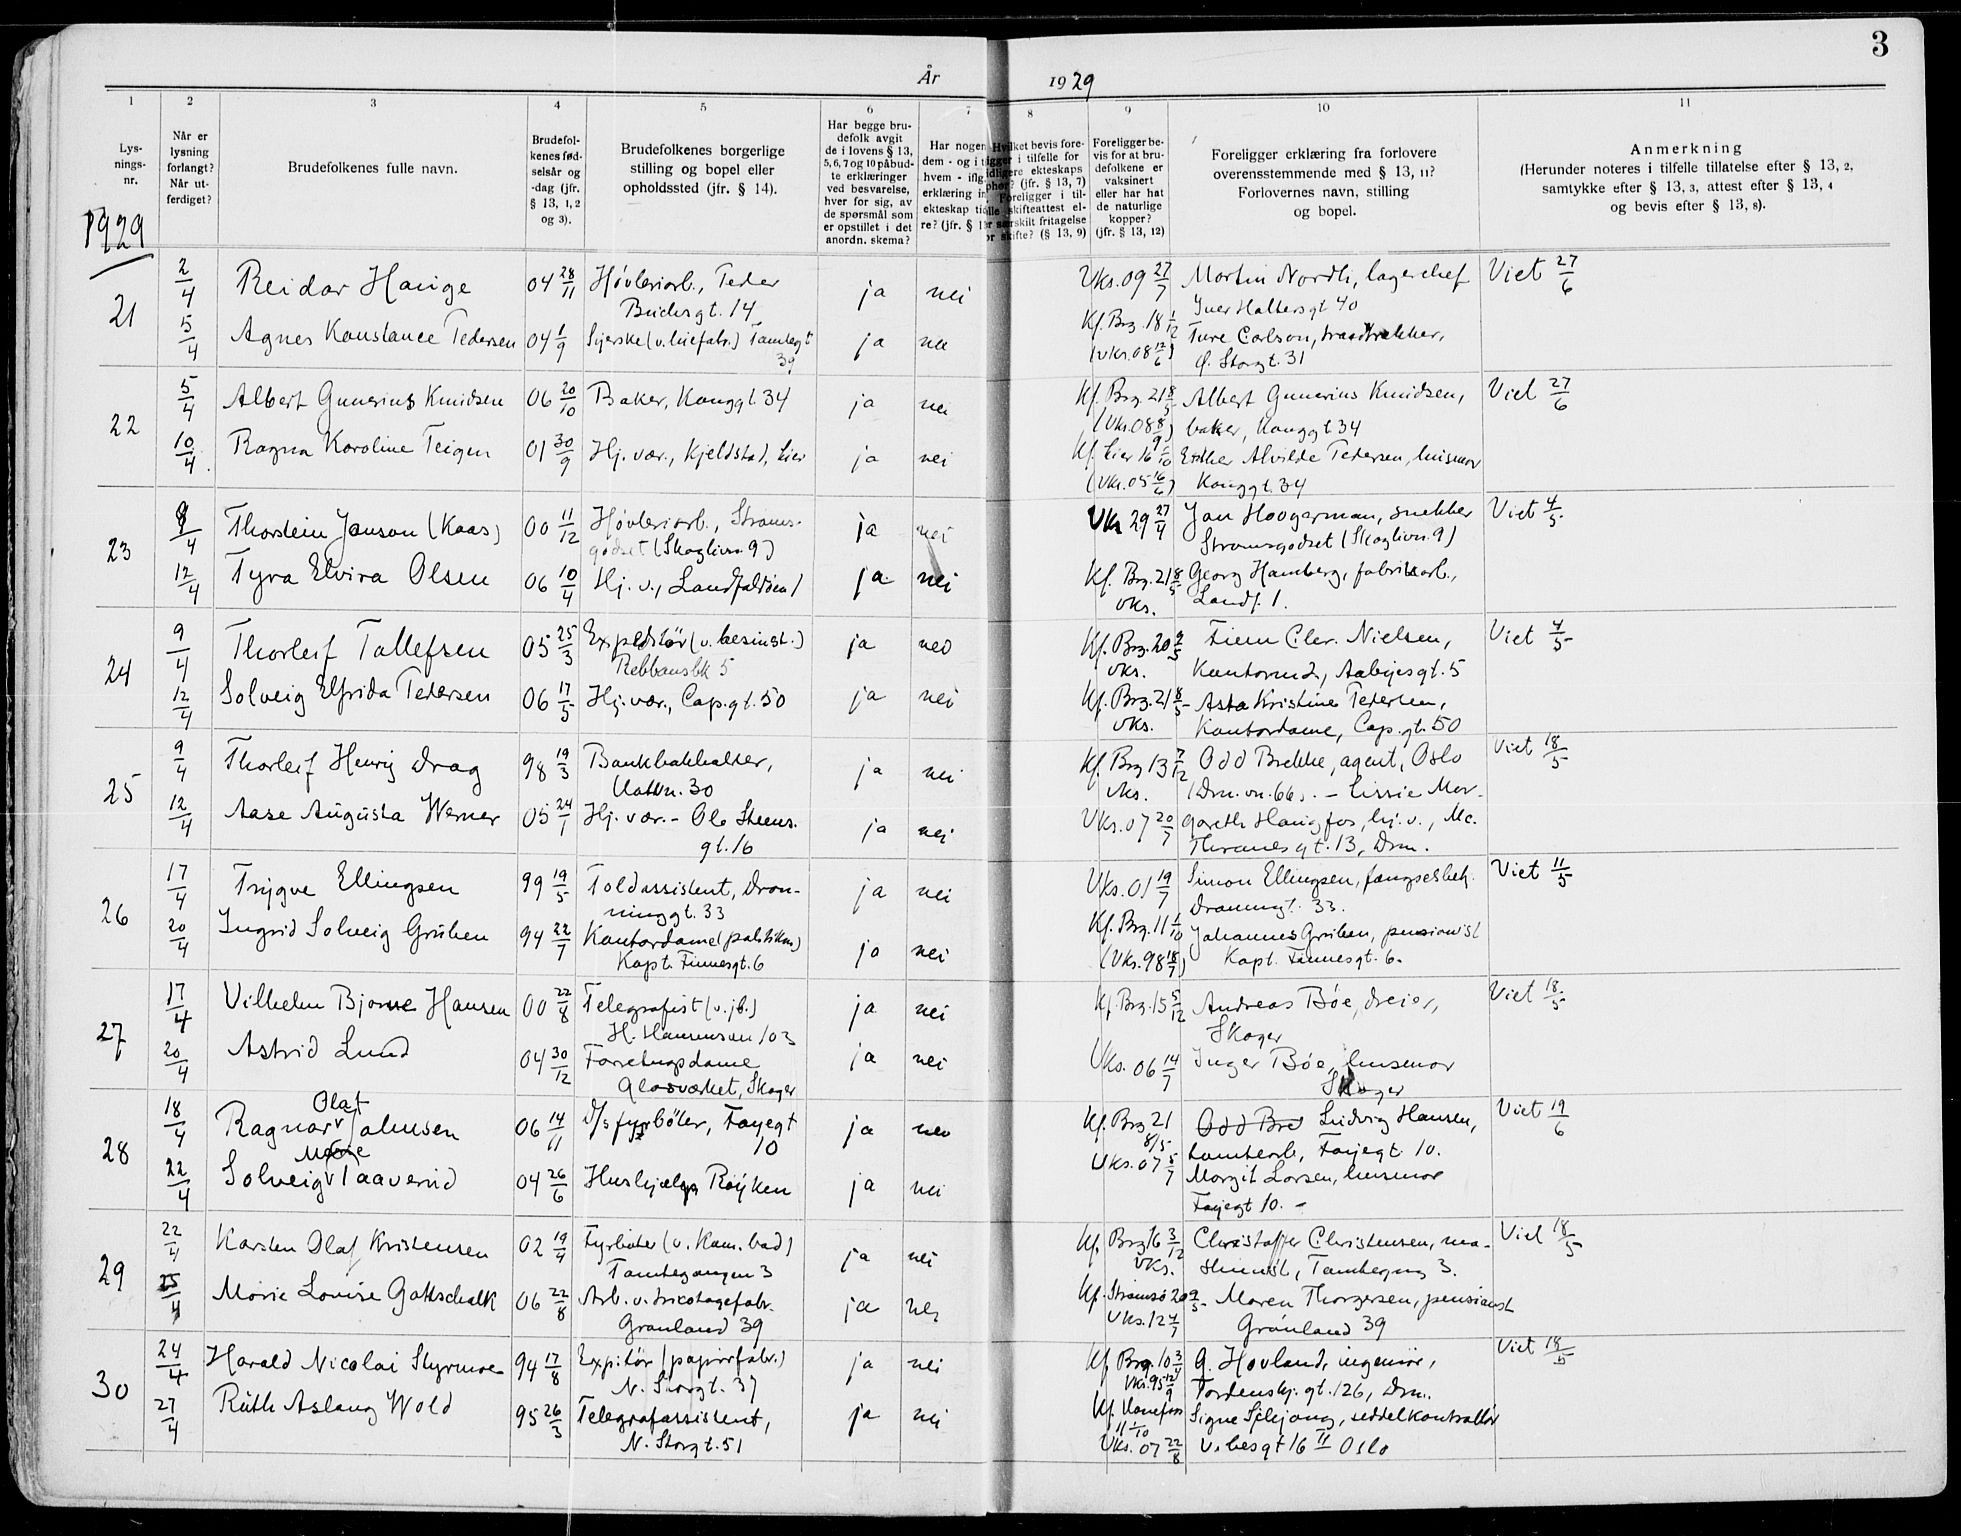 3
År 1929
1 2 3 4 5 6 7 8 9 10 11
Lys-
nings-
nr.
Når er
lysning
forlangt?
Når ut-
ferdiget?
Brudefolkenes fulle navn.
Brudefol-
kenes fød-
selsår og
-dag (jfr.
§ 13, 1, 2
og 3).
Brudefolkenes borgerlige
stilling og bopel eller
opholdssted (jfr. § 14).
Har begge bru-
defolk avgit
de i lovens § 13,
5, 6, 7 og 10 påbud-
te erklæringer
ved besvarelse,
hver for sig, av
de spørsmål som
er opstillet i det
anordn. skema?
Har nogen
dem - og i
hvem - iflg.
erklæring in
ekteskap ti
re? (jfr. § 1
Hvilket bevis fore-
ligger i tilfelle for
tidligere ekteskaps
ophør? (jfr. § 13, 7)
Foreligger i til-
felle skifteattest el-
ler særskilt fritagelse
for skifte? (§ 13, 9)
Foreligger be-
vis for at bru-
defolkene er
vaksinert
eller har hat
de naturlige
kopper?
(jfr. § 13, 12)
Foreligger erklæring fra forlovere
overensstemmende med § 13, 11?
Forlovernes navn, stilling
og bopel.
Anmerkning
(Herunder noteres i tilfelle tillatelse efter § 13, 2,
samtykke efter § 13, 3, attest efter § 13, 4
og bevis efter § 13, 8).
1929
21 2/4 Reidar Hauge 04 28/11 Høvleriarb., Peder ja nei Vks. 09 27/7 Martin Nordli, lagerchef Viet 27/6
Buchsgt. 14 Iver Hallersgt 40
5/4 Agnes Konstance Pedersen 04 1/9 Syerske (v. luefabr.) Tomtegt ja nei Kf. Brg. 18 1/12 Ture Carlson,
39 (vks. 08 12/6) Ø. Storgt. 31
22 5/4 Albert Gunerius Knudsen 06 20/10 Baker, Konggt. 34 ja nei Kf. Brg. 21 8/5 Albert Gunerius Knudsen, Viet 27/6
(Vks. 08 8/9) baker, Konggt. 34
10/4 Ragna Karoline Teigen 01 30/9 Hj. vær., Kjeldstad, Lier ja nei Kf. Lier 16 /10 Esther Alvilde Pedersen, husmor
(Vks. 05 16/6) Konggt. 34
23 9/4 Thorstein Janson (Kaas) 00 11/12 Høvleriarb., Strøms- ja nei Vks 29 27/4 Jan Hoogerman, snekker Viet 4/5
godset (Skoglivn. 9) Strømsgodset (Skoglivn. 9)
12/4 Tyra Elvira Olsen 06 10/4 Hj. v., Landfaldøen 1 ja nei Kf. Brg. 21 8/5 Georg Hamberg, fabrikarb.,
vks. Landf. 1.
24 9/4 Thorleif Tollefsen 05 25/3 ja nei Kf. Brg. 20 9/5 Finn Chr. Nielsen, Viet 4/5
Rebbansbk 5 vks. Kontormd., Aabyesgt. 5
12/4 Solveig Elfrida Pedersen 06 17/5 Hj. vær., Cap. gt. 50 ja nei Kf. Brg. 21 8/5 Asta Kristine Pedersen,
vks. Kontordame, Cap. gt. 50
25 9/4 Thorleif Henry Drag 98 19/3 Bankbokholder, ja nei Kf. Brg 13 7/12 Odd Brekke, agent, Oslo Viet 18/5
30 vks. (Drm. vn. 66). - Lissie Mar-
12/4 Aase Augusta Werner 05 24/1 Hj. vær. - Ole Steens- ja nei Vks. 07 20/7 grethe Haugfos, hj. v., Mc.
gt. 16 Thranesgt. 13, Drm.
26 17/4 Trygve Ellingsen 99 19/5 Toldassistent, Dron- ja nei Vks. 01 19/7 Simon Ellingsen, fængselsbetj. Viet 11/5
ninggt. 33 Dronninggt. 33.
20/4 Ingrid Solveig Gruben 94 22/7 Kontordame ja nei Kf. Brg. 11 1/10 Johannes Gruben, pensionist
Kapt. Finnesgt. 6 (Vks. 98 18/7) Kapt. Finnesgt. 6.
27 17/4 Vilhelm Bjarne Hansen 00 22/8 Telegrafist (v. jb.) ja nei Kf. Brg. 15 5/12 Andreas Bøe, dreier, Viet 18/5
H. Hansensan 103 Skoger
20/4 Astrid Lund 04 30/12 Forretngsdame ja nei Vks. 06 14/7 Inger Bøe, husmor
Glasværket, Skoger Skoger
28 18/4 Ragnar Olaf Johnsen 06 14/11 D/s fyrbøter, Fayegt ja nei Kf. Brg 21 Odd Bre Ludvig Hansen, Viet 19/6
10 8/5 tomtearb., Fayegt. 10.
22/4 Solveig Marie Taaverud 04 26/6 Hushjælp Røyken ja nei Vks. 07 5/7 Margit Larsen, husmor
Fayegt 10. -
29 22/4 Karsten Olaf Kristensen 02 19/4 Fyrbøter (v. Kom. bad) ja nei Kf. Brg 16 3/12 Christoffer Christensen, ma- Viet 18/5
Tomtegangen 3 vks. skinist, Tomtegang 3.
25/4 Marie Lovise Gottschalk 06 22/8 Arb. v. tricotagefabr. ja nei Kf. Strømsø 20 9/5 Maren Thorgersen, pensionist
Grønland 39 Vks. 12 4/7 Grønland 39
30 24/4 Harald Nicolai Styrmoe 94 17/8 Expitør (papirfabr.) ja nei Kf. Brg. 10 3/4 G. Hovland, ingeniør, Viet 18/5
N. Storgt. 37 Vks. 95 12/9 Tordenskj. gt. 126, Drm.
27/4 Ruth Aslaug Wold 95 26/3 Telegrafassistent, ja nei Kf. Hønefoss Signe Schjong, seddelkontrollør
N. Storgt. 51 11 1/10 Vks. 07 22/8 16 II Oslo